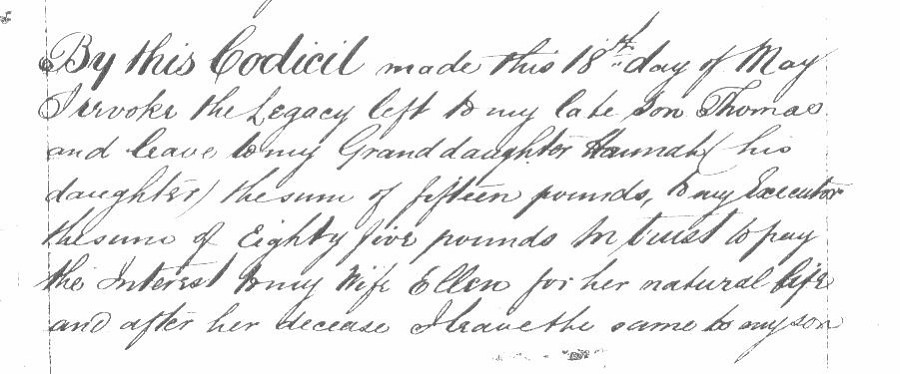 By this Codicil made this 18th day of May
I revoke the Legacy left to my late son Thomas
and leave to my Granddaughter Hannah (his
daughter) the sum of fifteen pounds, to my Executor
the sum of Eighty five pounds In trust to pay
the Interest to my Wife Ellen for her natural life
and after her decease I leave the same to my son